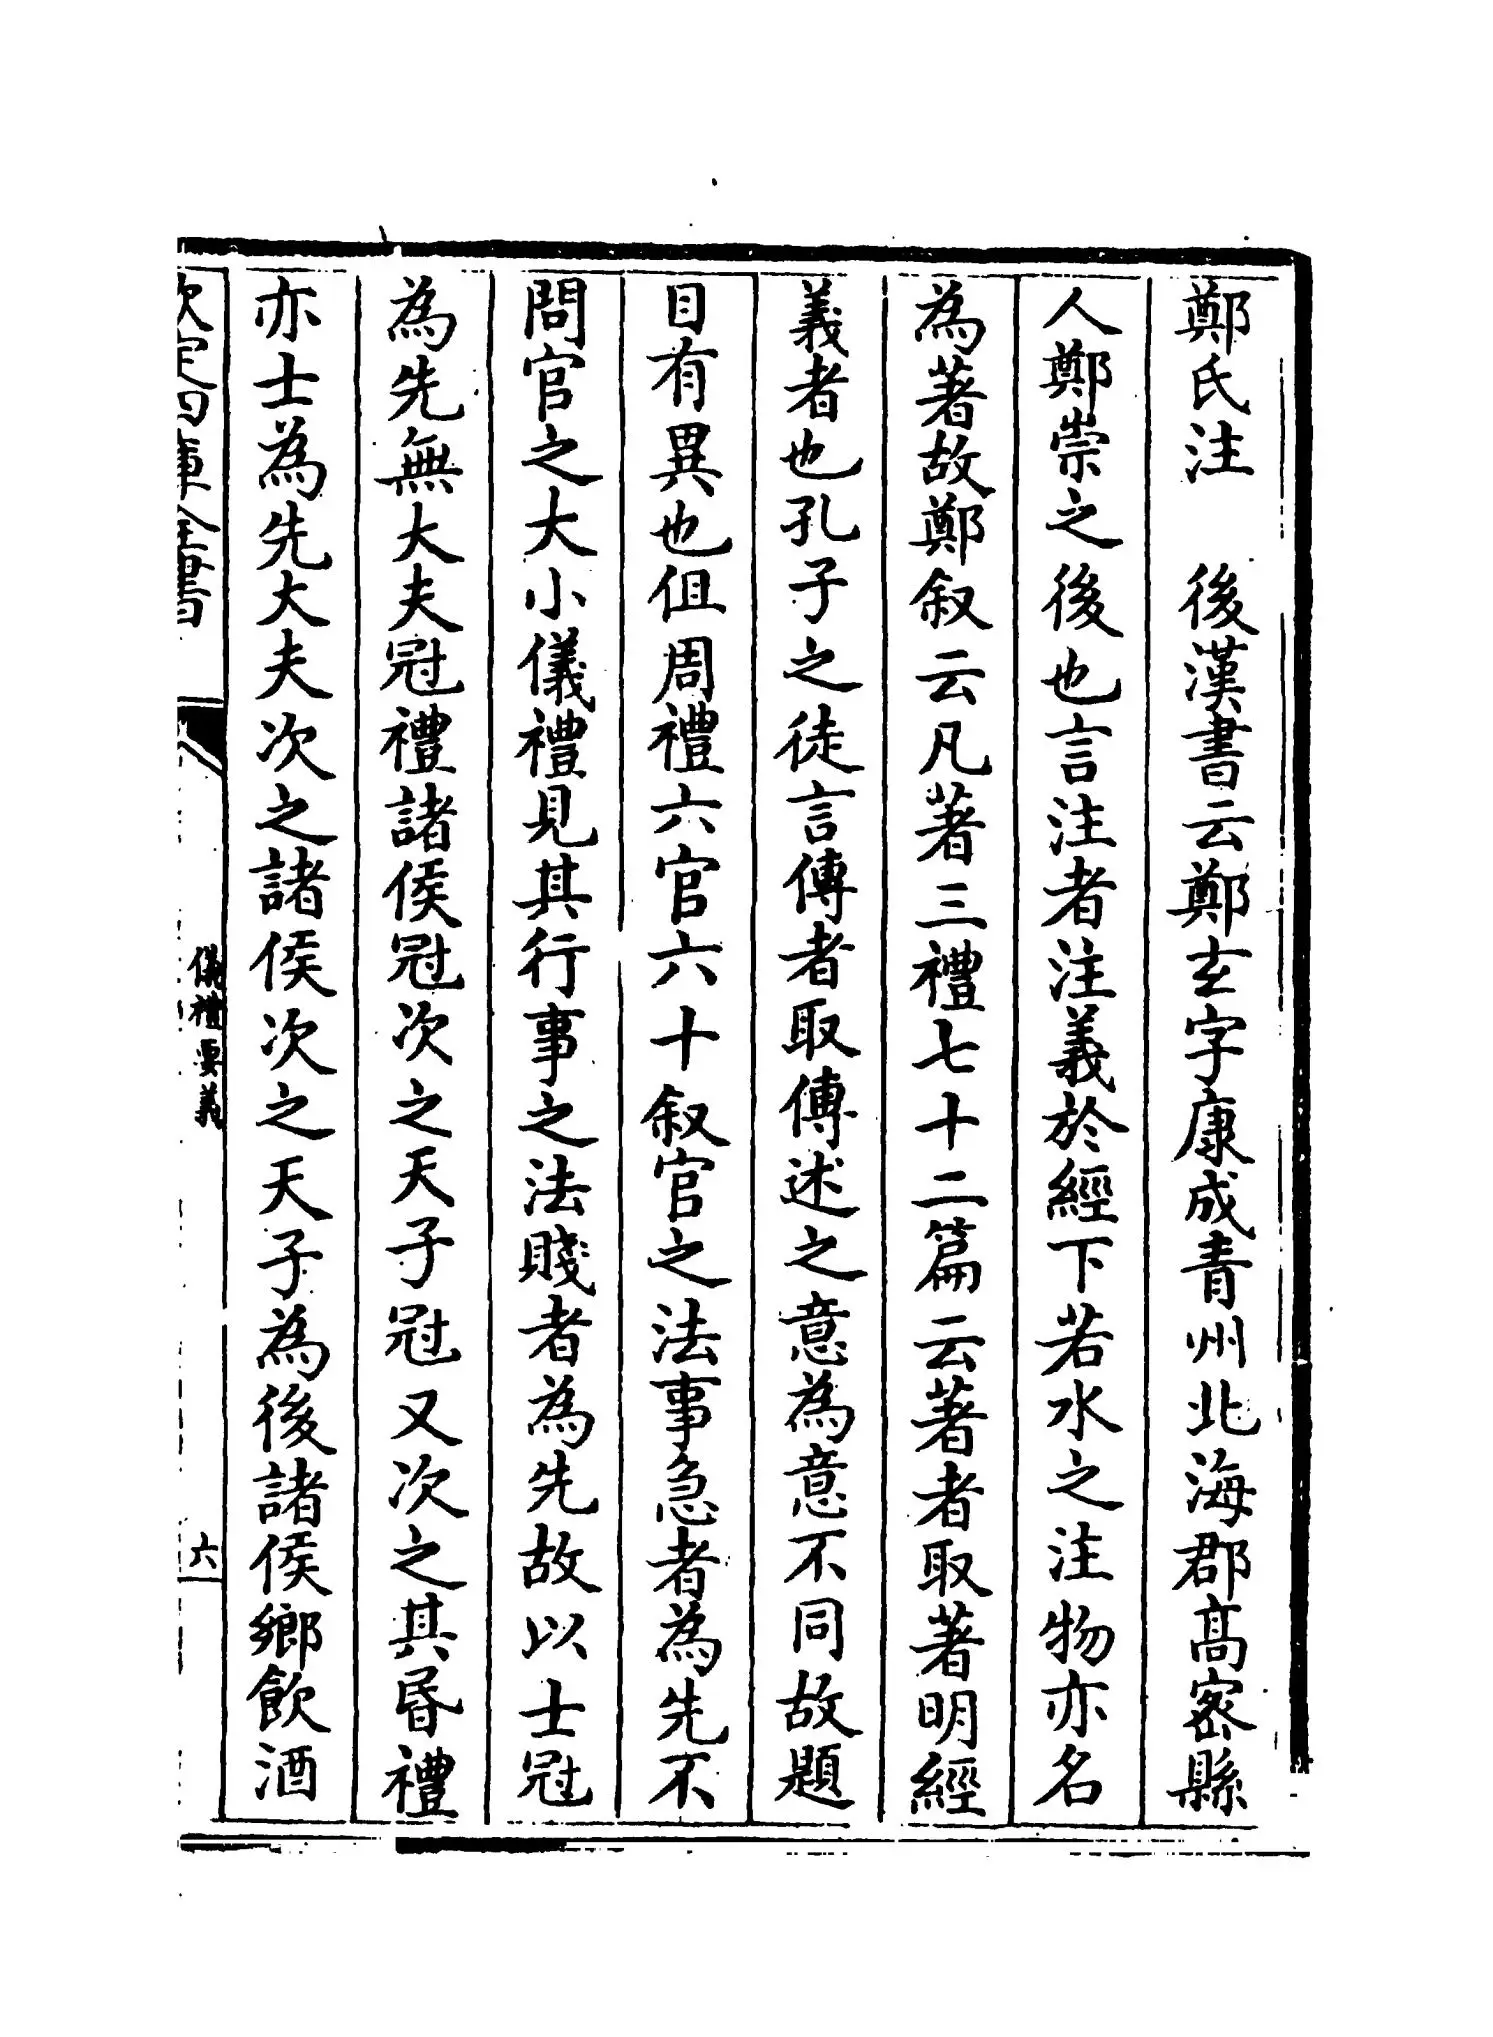 鄭氏注　後漢書云鄭玄字康成青州北海郡高宻縣
人鄭崇之後也言注者注義於經下若水之注物亦名
為著故鄭叙云凡著三禮七十二篇云著者取著明經
義者也孔子之徒言傳者取傳述之意為意不同故題
目有異也但周禮六官六十叙官之法事急者為先不
問官之大小儀禮見其行事之法賤者為先故以士冠
為先無大夫冠禮諸侯冠次之天子冠又次之其昏禮
亦士為先大夫次之諸侯次之天子為後諸侯鄉飲酒
欽定四庫全書
儀禮要義
六